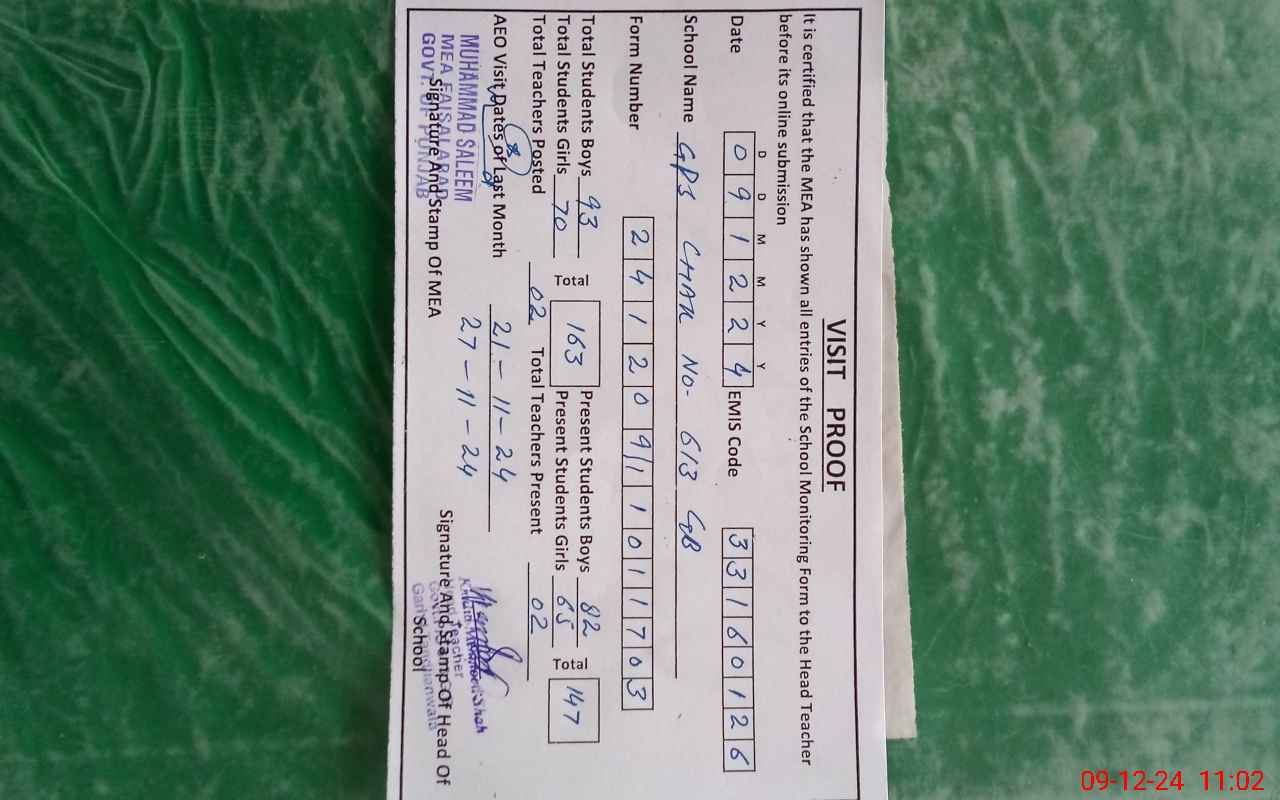 VISIT PROOF
It is certified that the MEA has shown all entries of the School Monitoring Form to the Head Teacher
before its online submission
D D M M Y Y
Date 0 9 1 2 2 4 EMIS Code 3 3 1 6 0 1 2 6
School Name GPS CHAK NO- 613 GB
Form Number 2 4 1 2 0 9 1 1 0 1 1 7 0 3
Total Students Boys 93 Present Students Boys 82
Total 163 Total 147
Total Students Girls 70 Present Students Girls 65
Total Teachers Posted 02 Total Teachers Present 02
AEO Visit Dates of Last Month 21-11-24
27-11-24
MUHAMMAD SALEEM
MEA FAISALABAD
GOVT. OF PUNJAB
Signature And Stamp Of MEA
Teacher
Signature And Stamp Of Head Of
School
09-12-24 11:02